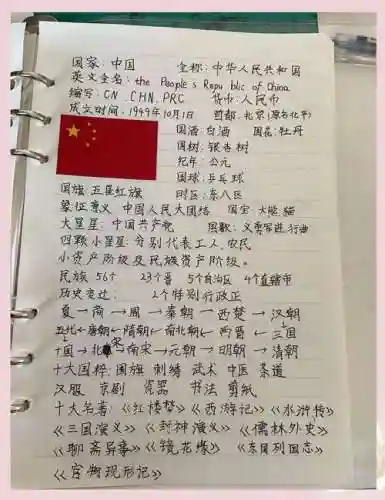 国家:中国 全称:中华人民共和国
英文全名:the People's Repu blic of China
编写:CN CHN PRC 货币:人民币
成立时间:1949年10月1日 首都:北京(原名北平)
国酒:白酒 国花:牡丹
国树:银杏树
纪年:公元
国球:乒乓球
国旗:五星红旗 时区:东八区
象征意义 中国人民大团结 国宝:大熊猫
大星星:中国共产党 国歌:义勇军进行曲
四颗小星星分别代表工人,农民
小资产阶级及民族资产阶级。
民族 56个 23个省 5个自治区 4个直辖市
历史变迁: 2个特别行政
夏→商→周→秦朝→西楚→汉朝
五代←唐朝←隋朝←南北朝←西晋←三国
十国→北宋→南宋→元朝→明朝→清朝
十大国粹:国旗 刺绣 武术 中医 茶道
汉服 京剧 瓷器 书法 剪纸
十大名著:《红楼梦》《西游记》《水浒传》
《三国演义》《封神演义》《儒林外史》
《聊斋异事》《镜花缘》《东周列国志》
《官场现形记》